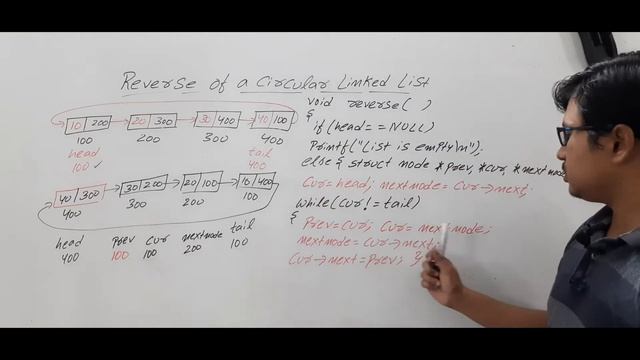 Reverse of a Circular Linked List
10 200 20 300 30 400 40 100
100 200 300 400
head tail
100 ✓ 400
40 300 30 200 20 100 10 400
400 300 200 100
head prev cur nextnode tail
400 100 100 200 100
void reverse( )
{
if(head==NULL)
Printf("List is empty\n").
else { struct node *prev, *cur, *nextnode
Cur=head; nextnode=cur→next;
while(cur!=tail)
{
Prev=cur; cur=nextnode;
nextnode=cur→next;
Cur→next=prev; }